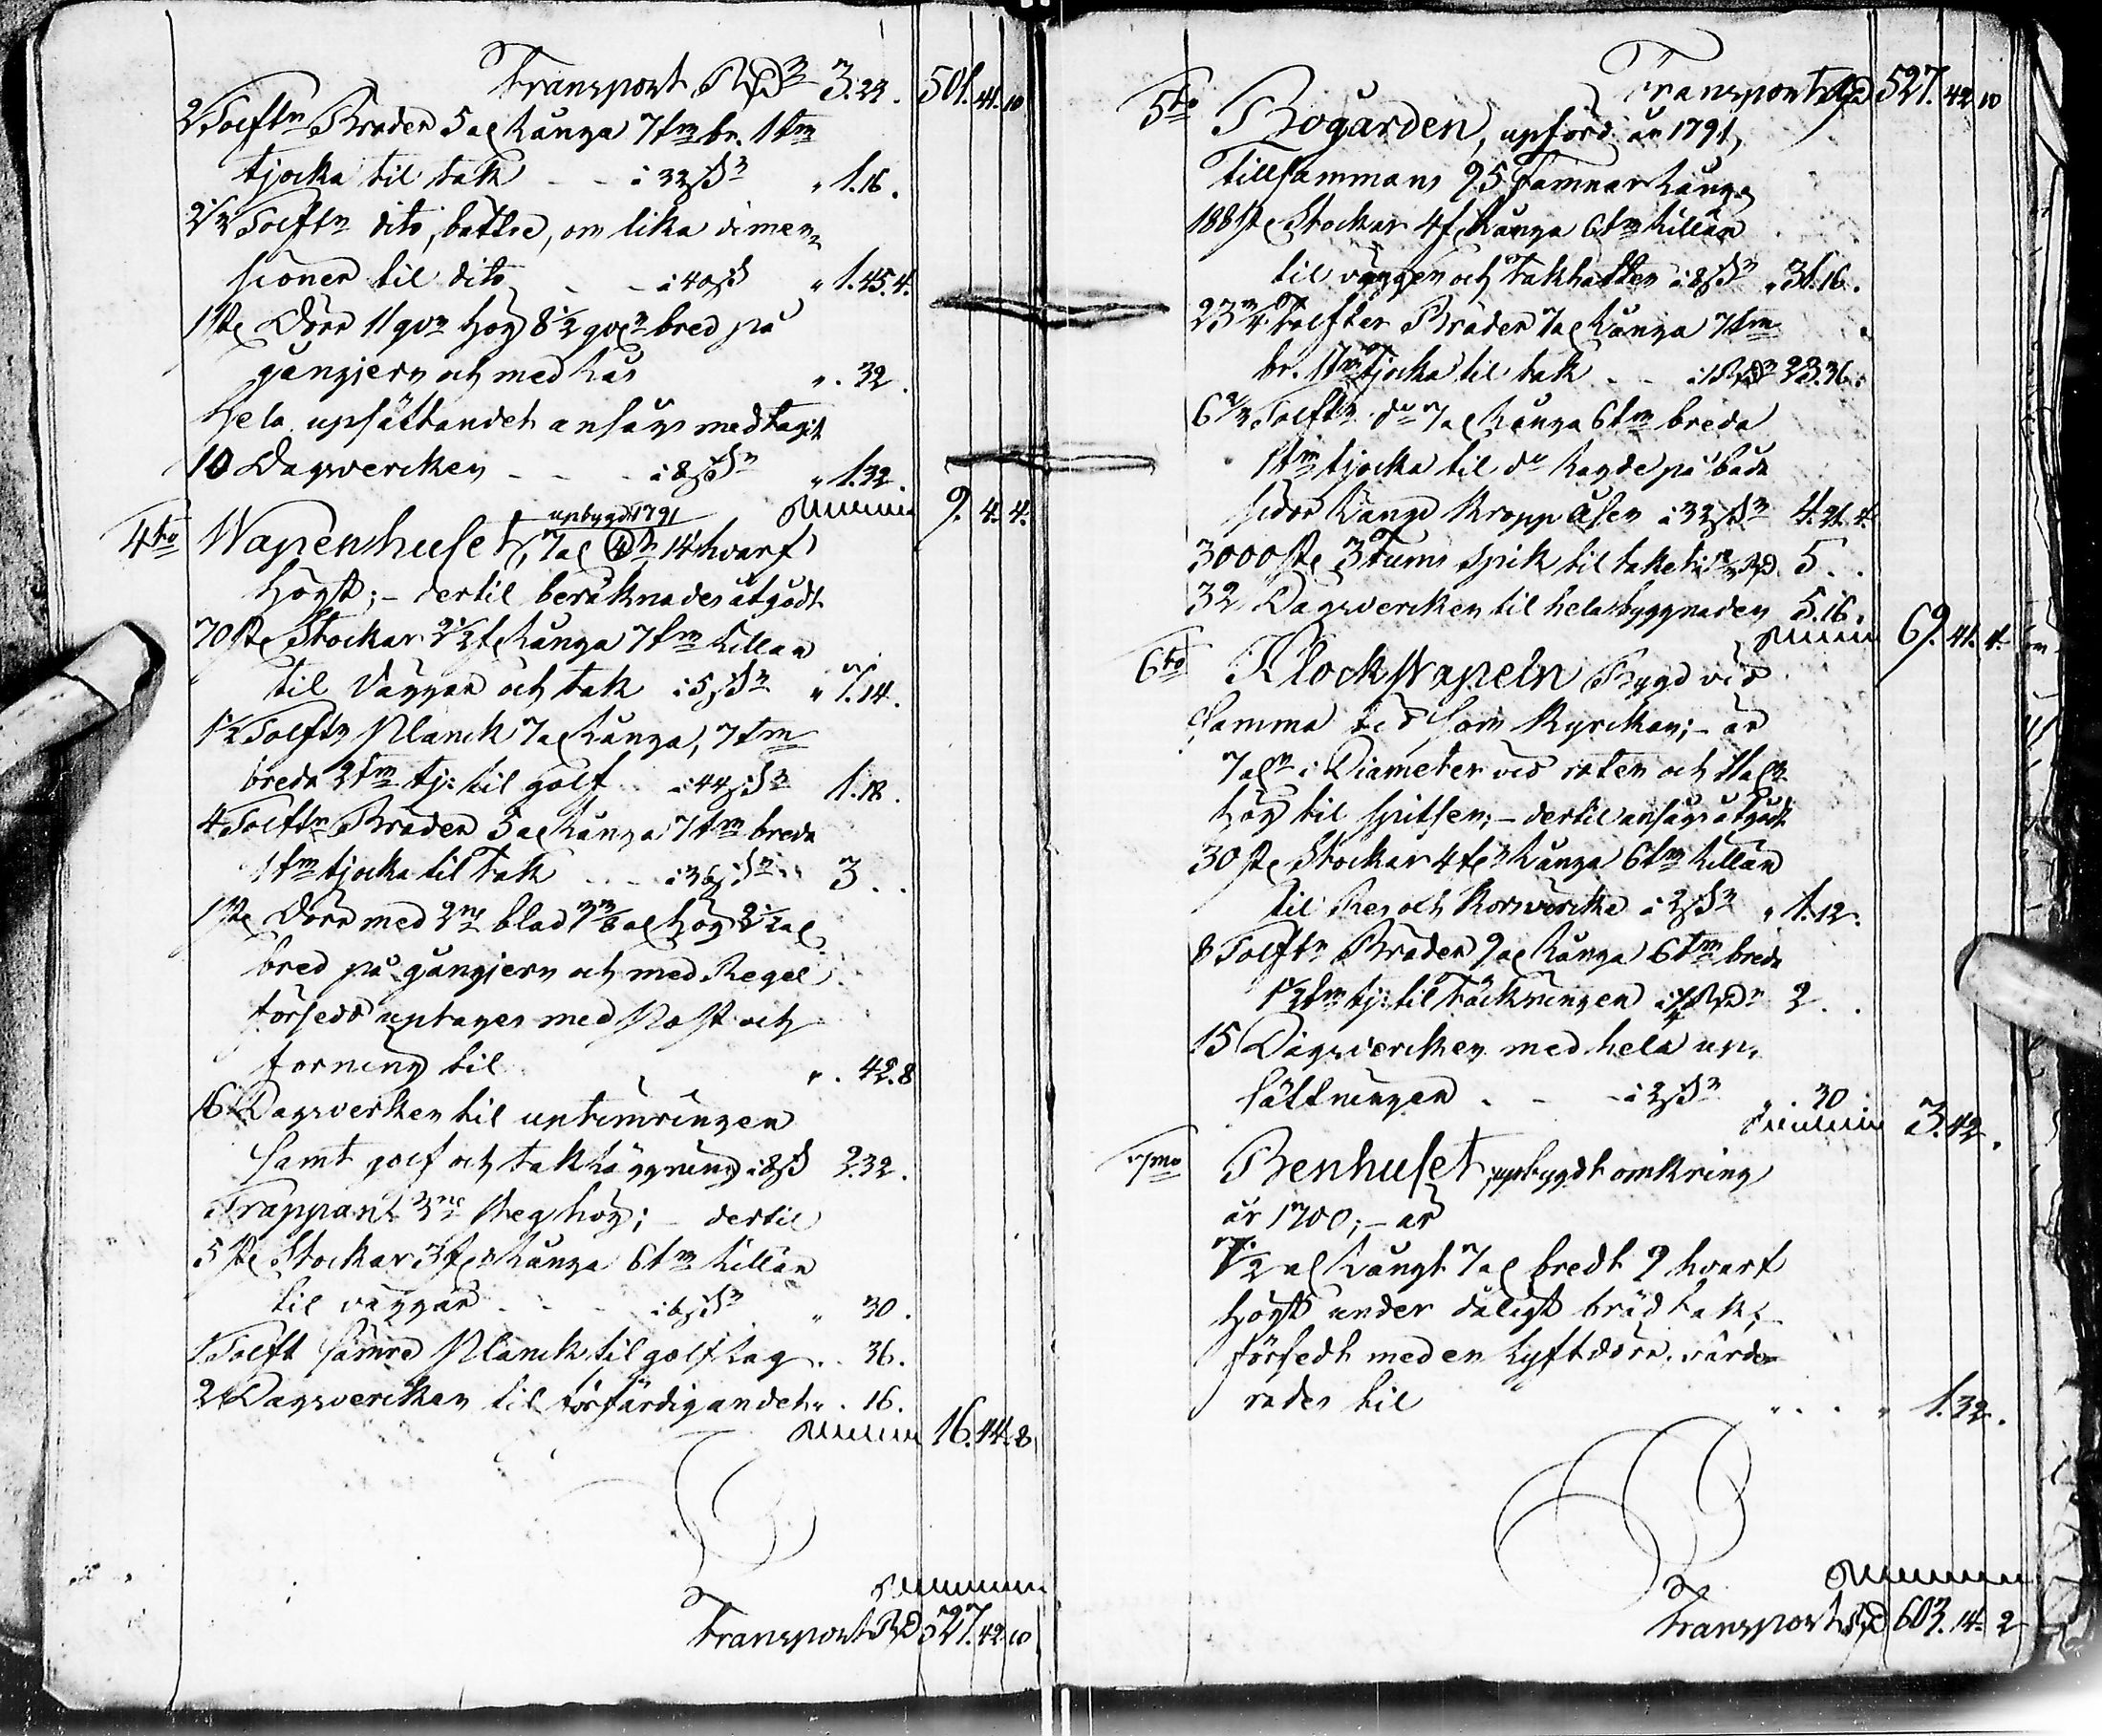 Transport Rd 3.24. 501.41.10
2 Tolftr Bräder 5 al långa 7 tm br. 1 tm
tjocka til tak - - i 32 sk " 1.16.
2½ Tolftr dito, bättre, om lika dimen-
sioner til dito - - i 40 sk " 1.45.4.
1 st Dörr 11 qvr hög 8½ qvr bred på
gångjern och med lås " . 32.
Hela upsättandet ansågs medtagit
10 Dagsvercken - - - i 8 sk " 1.32.
Summa 9. 4. 4.
upbygd 1791
4to Wapenhuset, 7 al 14 hvarf
högt; - dertil beräknades åtgådt
70 st Stockar 2½ f långa 7 tm lillän
til väggar och tak i 5 sk " 7.14.
1½ Tolftr Planck 7 al långa, 7 tm
breda 2 tm tj: til golf i 44 sk 1.18.
4 Tolftr Bräder 5 al långa 7 tm breda
1 tm tjocka til tak - - i 36 sk 3 . .
1 st Dörr med 2ne blad hög 2½ al
bred på gångjern och med Regel
försedd uptages med Påst och
forning til " . 42.8
16 Dagsverken til uptimringen
samt golf och takläggning i 8 sk 2.32.
Trappan 3ne steg hög; - dertil
5 st Stockar 3 f långa 6 tm lillän
til väggar - - - i 6 sk " 30.
1 Tolft sämre Planck til golf lag . . 36.
2 Dagsvercken til förfärdigandet " . 16.
Summa 16.44.8
Summa
Transport Rd 527.42.10
Transport Rd 527.42.10
5to Bogården, upförd år 1791,
Tillsammans 95 Famnar långa
188 st Stockar 4 f långa 6 tm lillän
til väggen och Takhatten i 8 sk " 31.16.
23¾ tolfter Bräder 7 al långa 7 tm
br. 1 tm tjocka til tak - - i 1 Rd 23.36.
6½ Tolftr do 7 al långa 6 tm breda
1 tm tjocka til do lagde på båda
sidor längs Kropp åsen i 32 sk 4.21.4.
3000 st 3 tums spik til taket Rd. 5 . .
32 Dagsvercken til hela byggnaden 5.16.
Summa 69.41.4.
6to Klock Stapeln Bygd vid
samma tid som Kyrckan; - är
7 aln i Diameter vid roten och
hög til spitsen; - dertil ansågs åtgådt
30 st Stockar 4 f långa 6 tm lillän
til Res och Korsvircke i 2 sk " 1.12.
8 Tolftr Bräder 9 al långa 6 tm breda
1½ tm tj: til Täckningen i ¼ Rd 2 . .
15 Dagsvercken med hela up-
sättningen - - - i 2 sk " . 30
Summa 3.42.
7mo Benhuset upbygdt omkring
år 1700; - är
7½ al långt 7 al bredt 9 hvarf
högt under dåligt brädtak;
försedt med en lyftdörr. värde-
rades til " . . . " 1.32.
Summa
Transport Rd 603.14.2